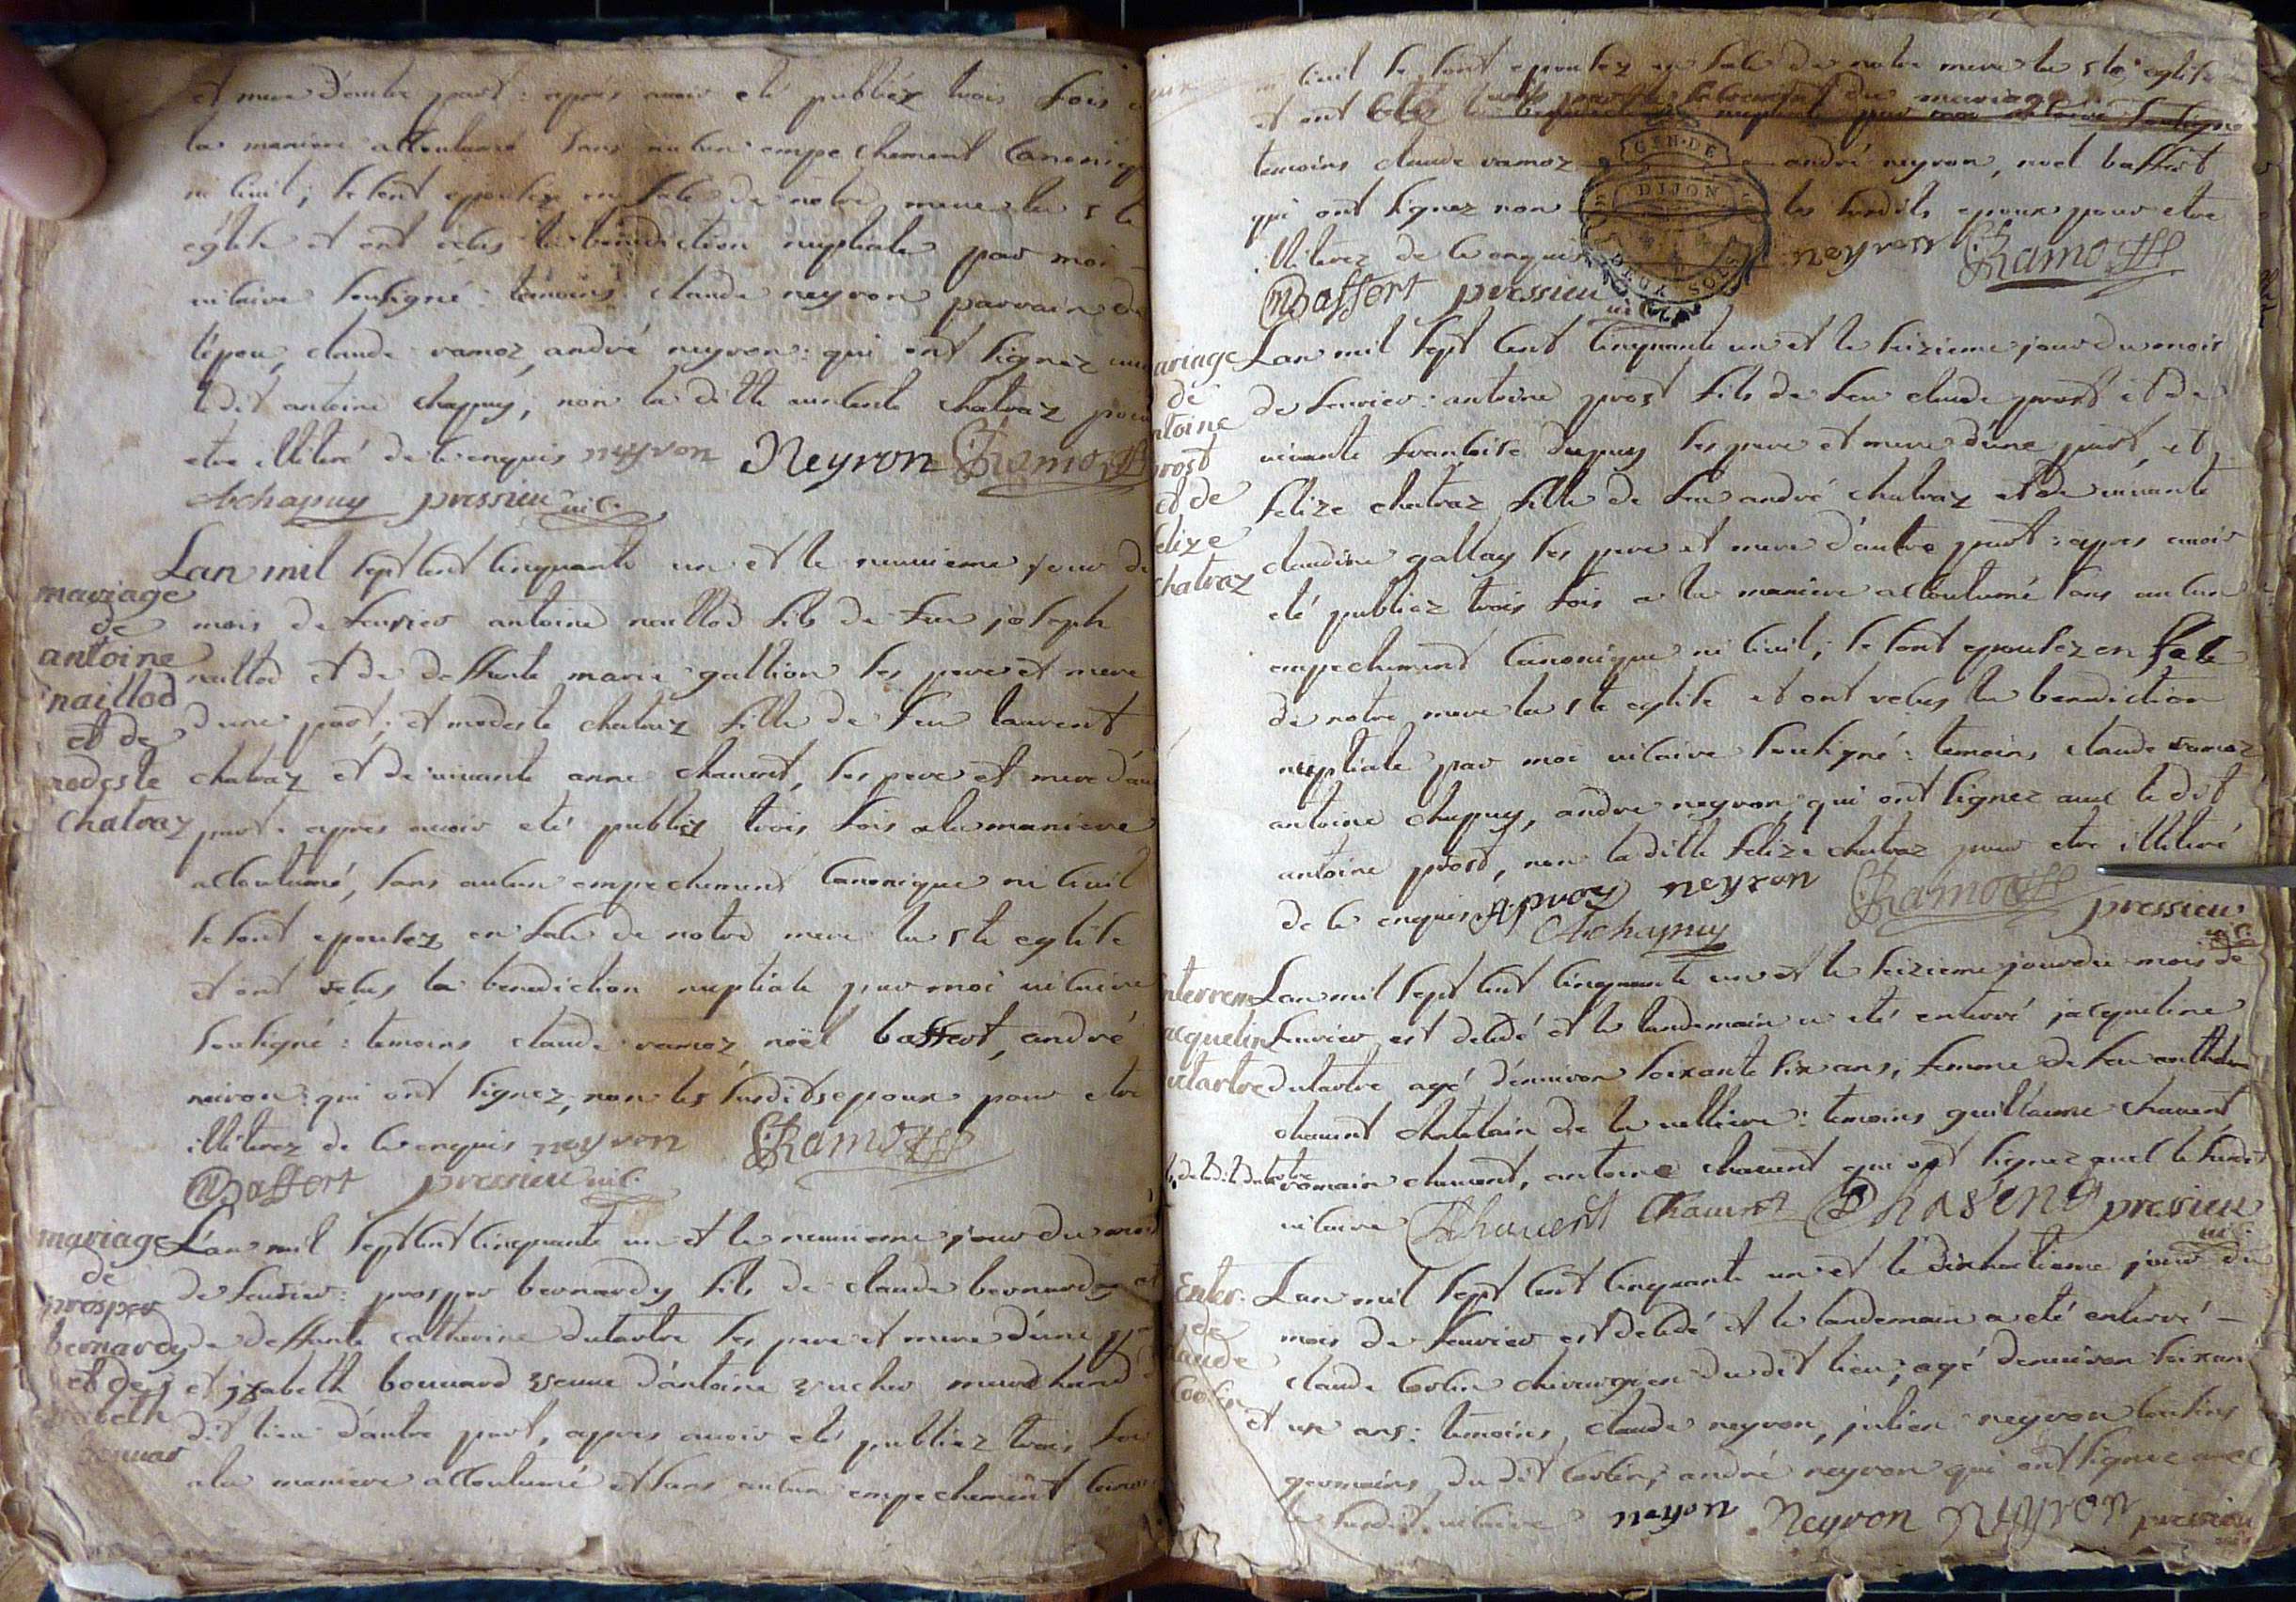 et mere d'autre part : apres avoir eté publiéz trois fois
la maniere accoutumé sans aucun empechement canoniq
ni civil ; se sont epousez en face de notre mere la ste
eglise et ont recus la benediction nuptiale par moi
vicaire soussigné : temoins claude neyron parrain de
l'epou, claude ramoz, andré neyron : qui ont signez
ledit antoine chapuy, non la ditte chatraz pour
etre illiteré de ce enquis neyron Neyron CRamoz
Achapuy pressieu vic.
mariage
de
antoine
naillod
et de
modeste
chatraz
Lan mil sept cent cinquante un et le neuvieme jour de
mois de fevrier antoine naillod fils de feu joseph
naillod et de deffunte marie gallion ses pere et mere
d'une part ; et modeste chatraz fille de feu laurent
chatraz et de vivante anne chavent, ses pere et mere d'au
part : apres avoir eté publiéz trois fois a la maniere
accoutumé, sans aucun empechement canonique ni civil
se sont epousez en face de notre mere la ste eglise
et ont recus la benediction nuptiale par moi vicaire
soussigné : temoins claude ramoz noël baffert, andré
neiron : qui ont signez, non les susdits epoux pour etre
illiterez de ce enquis neyron CRamoz
N Baffert pressieu vic.
mariage
de
prosper
bernardy
et de
jzabeth
bouvar
Lan mil sept cent cinquante un et le neuvieme jour du mois
de fevrier : prosper bernardy fils de claude bernardy et
de deffunte catherine dutartre ses pere et mere d'une p
et jzabeth bouvard veuve d'antoine marchand
dit lieu d'autre part, apres avoir eté publiez trois foi
a la maniere accoutumé et sans aucun empechement cano
ni civil se sont epousez en face de notre mere la ste eglise
et ont mariage
temoins claude ramoz andré neyron, noel baffert
qui ont signez non les susdits epoux pour etre
illiterez de ce enquis neyron CRamoz
GEN. DE
DIJON
N Baffert pressieu vic.
ariage
de
ntoine
prost
et de
elize
chatraz
Lan mil sept cent cinquante un et le seizieme jour du mois
de fevrier : antoine prost fils de feu claude prost et de
vivante francoise dupuy ses pere et mere d'une part, et
felize chatraz fille de feu andré chatraz et de vivante
claudine gallay ses pere et mere d'autre part : apres avoir
eté publiez trois fois a la maniere accoutumé sans aucun
empechement canonique ni civil ; se sont epousez en face
de notre mere la ste eglise et ont recus la benediction
nuptiale par moi vicaire soussigné : temoins claude ramoz
antoine chapuy, andre neyron, qui ont signez avec le dit
antoine prost, non la ditte felize chatraz pour etre illiteré
de ce enquis neyron CRamoz pressieu
Achapuy vic.
nterrem
acqueline
utartre
Lan mil sept cent cinquante un et le seizieme jour du mois de
fevrier est decedé et le landemain a eté enterré jacqueline
dutartre agé d'environ soixante six ans, femme de feu anthelme
chavent chatelain de la velliere : temoins guillaume chavent
romain chavent, antoine chavent qui ont signez avec le susdit
vicaire Chavent Chavent pressieu
vic.
Enter.
de
claude
Corlin
Lan mil sept cent cinquante un et le dixhuitieme jour du
mois de fevrier est decedé et le landemain a eté enterré
claude Corlin chirurgien du dit lieu, agé denviron soixan
et un ans : temoins claude neyron, julien neyron cousins
germains du dit Corlin, andré neyron qui ont signez avec
le susdit vicaire neyron Neyron NEYRON pressieu